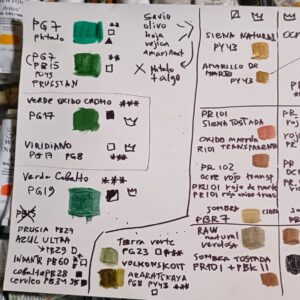 PG7
phtalo
**
PG7
PB15
PY3
PRUSSIAN
Savia
olivo
hoja
vejiga
Amarillent
Phtalo
+ algo
VERDE OXIDO CROMO
PG17
***
VIRIDIANO
PG17 PG8
***
Verde Cobalto
PG19
***
PRUSIA PB29
AZUL ULTRA
PB29
INDANTR PB60
cobalto PB28
ceruleo PB34 35
Tierra verte
PG23
VOLKONSKOIT
ARARATCKAYA
PG8 PY43
SIENA NATURAL
PY43
AMARILLO DE
MARTE
PY43
PR101
SIENA TOSTADA
OXIDO marron
R101 TRANSPARENTE
PR102
OCRE rojo transp
PR101 rojo de marte
PR101 rojo oxido trans
SOMBRA
PBR7
RAW
natural
verdosa
SOMBRA TOSTADA
PR101 + PBK11